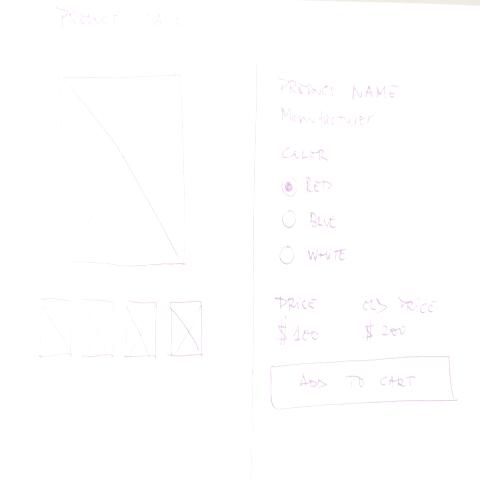 PRODUCT
PRODUCT NAME
Manufacturer
COLOR
RED
BLUE
WHITE
PRICE OLD PRICE
$ 100 $ 200
ADD TO CART